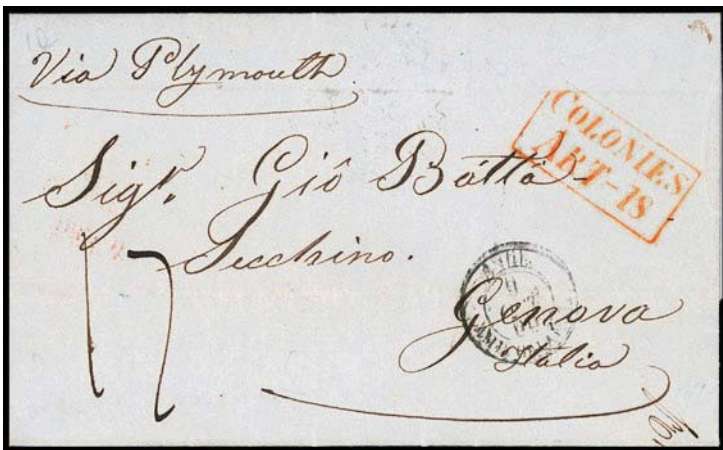 Via Plymouth
COLONIES
ART-18
Sigr. Giô Batta
Secchino.
17
Genova
Italia